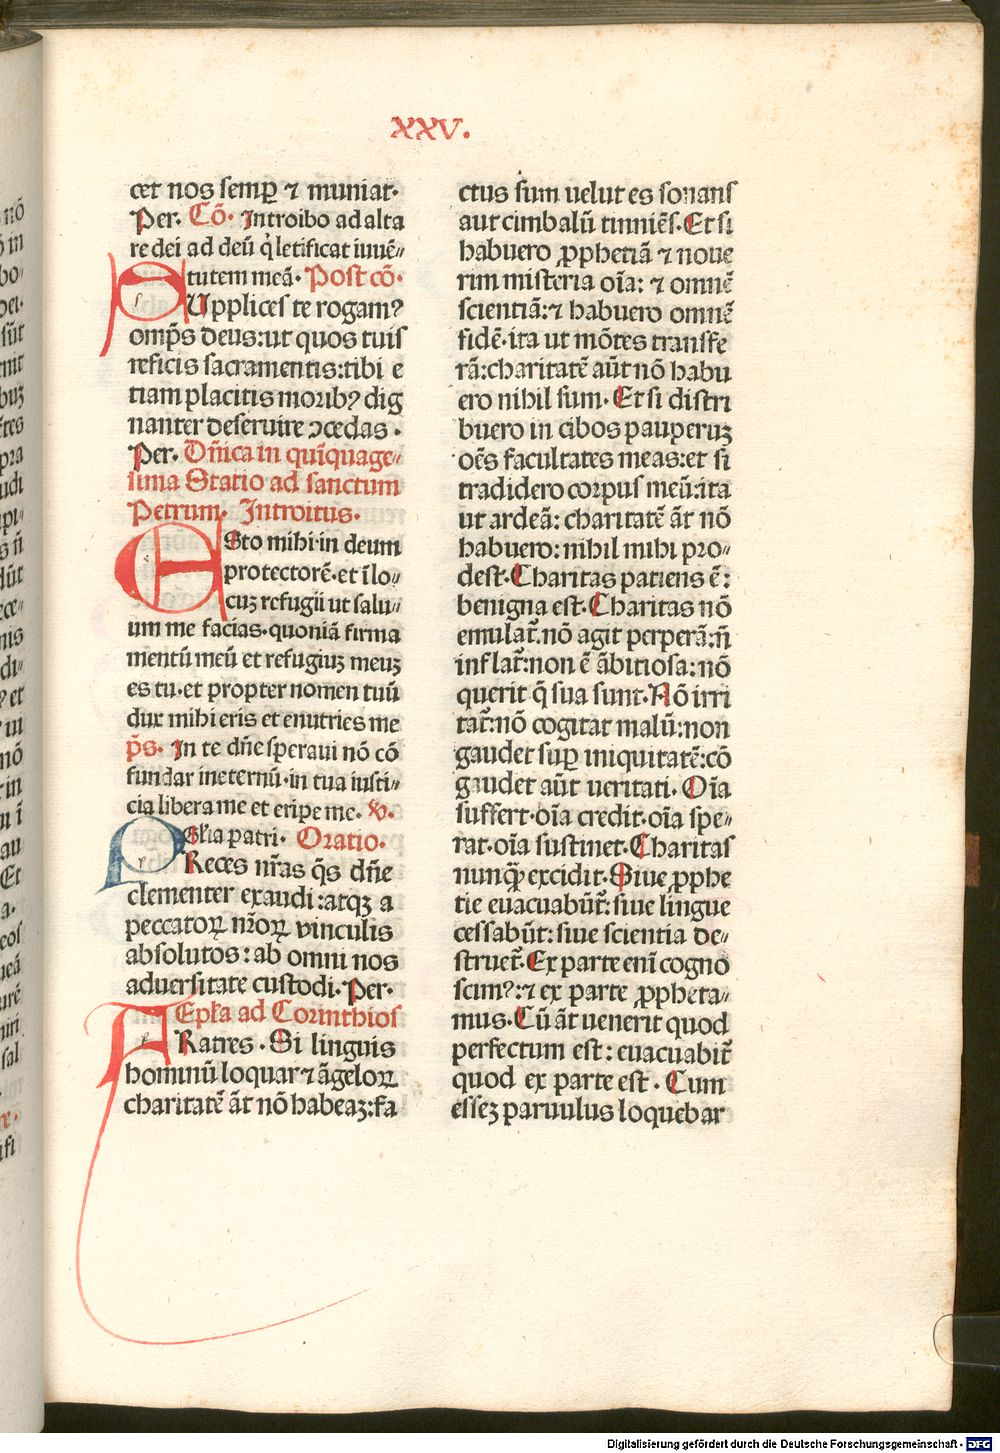 XXV.
cet nos semꝑ ⁊ muniat.
Per. Cō. Introibo ad alta
re dei ad deū q̇ letificat iuuē⸗
tutem meā. Post cō.
Upplices te rogamꝰ
omp̄s deus: ut quos tuis
reficis sacramentis: tibi e
tiam placitis moribꝰ dig
nanter deseruire ɔcedas.
Per. Dn̄ica in quīquage⸗
sima Statio ad sanctum
Petrum. Introitus.
ESto mihi in deum
protectorē. et ī lo⸗
cuꝫ refugii ut salu⸗
um me facias. quoniā firma
mentū meū et refugiuꝫ meuꝫ
es tu. et propter nomen tuū
dux mihi eris et enutries me
p̄s. In te dn̄e speraui nō cō
fundar in eternū. in tua iusti⸗
cia libera me et eripe me. ℣.
Gl̄ia patri. Oratio.
PReces nr̄as q̄s dn̄e
clementer exaudi: atqꝫ a
peccatoꝝ nr̄oꝝ vinculis
absolutos: ab omni nos
aduersitate custodi. Per.
Epl̄a ad Corinthios
FRatres. Si linguis
hominū loquar ⁊ āgeloꝝ
charitatē āt nō habeaꝫ: fa
ctus sum uelut es sonans
aut cimbalū tinniēs. Et si
habuero ꝓphetiā ⁊ noue
rim misteria oīa: ⁊ omnē
scientiā: ⁊ habuero omnē
fidē. ita ut mōtes transfe
rā: charitatē aūt nō habu
ero nihil sum. Et si distri
buero in cibos pauperuꝫ
oēs facultates meas: et si
tradidero corpus meū: ita
ut ardeā: charitatē āt nō
habuero: nihil mihi pro⸗
dest. Charitas patiens ē:
benigna est. Charitas nō
emulat̄. nō agit perperā: n̄
inflat̄: non ē ābitiosa: nō
querit q̄ sua sunt. Nō irri
tat̄: nō cogitat malū: non
gaudet suꝑ iniquitatē: cō
gaudet aūt ueritati. Oīa
suffert. oīa credit. oīa spe⸗
rat. oīa sustinet. Charitas
nunqꝫ̄ excidit. Siue ꝓphe
tie euacuabūt̄: siue lingue
cessabūt: siue scientia de⸗
struet̄. Ex parte enī cogno
scimꝰ: ⁊ ex parte ꝓpheta⸗
mus. Cū āt uenerit quod
perfectum est: euacuabit̄
quod ex parte est. Cum
esseꝫ paruulus loquebar
Digitalisierung gefördert durch die Deutsche Forschungsgemeinschaft - DFG